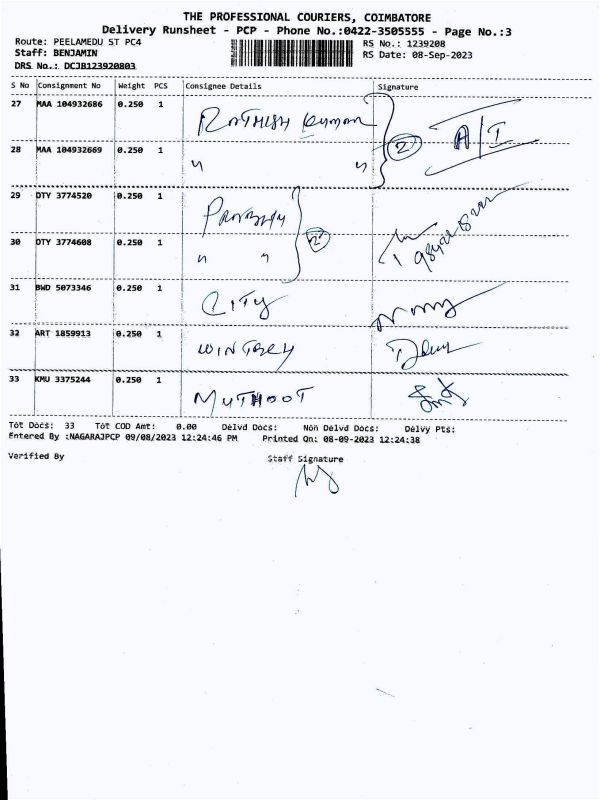 THE PROFESSIONAL COURIERS, COIMBATORE
Delivery Runsheet - PCP - Phone No.:0422-3505555 - Page No.:3
Route: PEELAMEDU ST PC4 RS No.: 1239208
Staff: BENJAMIN RS Date: 08-Sep-2023
DRS No.: DCJB123920803
S No Consignment No Weight PCS Consignee Details Signature
27 MAA 104932686 0.250 1 RATHISH Kumar
28 MAA 104932669 0.250 1 " " 2 A/I
29 DTY 3774520 0.250 1
30 DTY 3774608 0.250 1 " " 2
31 BWD 5073346 0.250 1 CITY
32 ART 1859913 0.250 1
33 KMU 3375244 0.250 1 MUTHOOT
Tot Docs: 33 Tot COD Amt: 0.00 Delvd Docs: Non Delvd Docs: Delvy Pts:
Entered By :NAGARAJPCP 09/08/2023 12:24:46 PM Printed On: 08-09-2023 12:24:38
Verified By Staff Signature